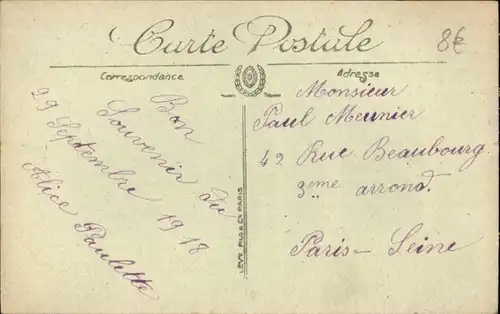 Carte Postale
8€
Correspondance
Adresse
Bon
Souvenir du
29 Septembre 1918
Alice Paulette
LEVY FILS & Cie PARIS
Monsieur
Paul Meunier
42 Rue Beaubourg
3eme arrond.
Paris - Seine